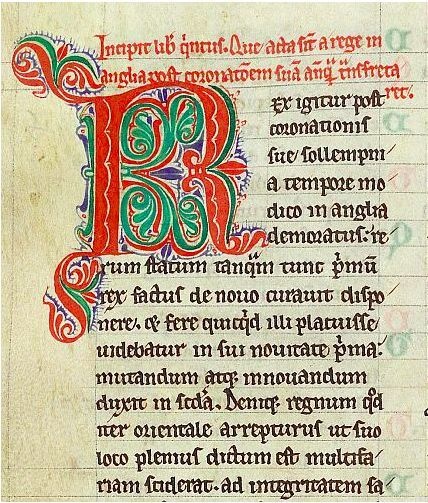 Incipit lib̃ q'ntus. Que acta sũt a rege in
anglia post coronatõem suã anq̃ t'nsfreta
ret.
REX igitur post
coronationis
sue sollempni
a tempore mo
dico in anglia
demoratus: re
rum statum tanq̃m tunc p'mũ
rex factus de nouo curauit dispo
nere. ⁊ fere quicq'd illi placuisse
uidebatur in sui nouitate p'ma:
mutandum atq; innouandum
duxit in scďa. Deniq; regnum qđ
iter orientale arrepturus ut suo
loco plenius dictum est multifa
riam sciderat. ad integritatem fa